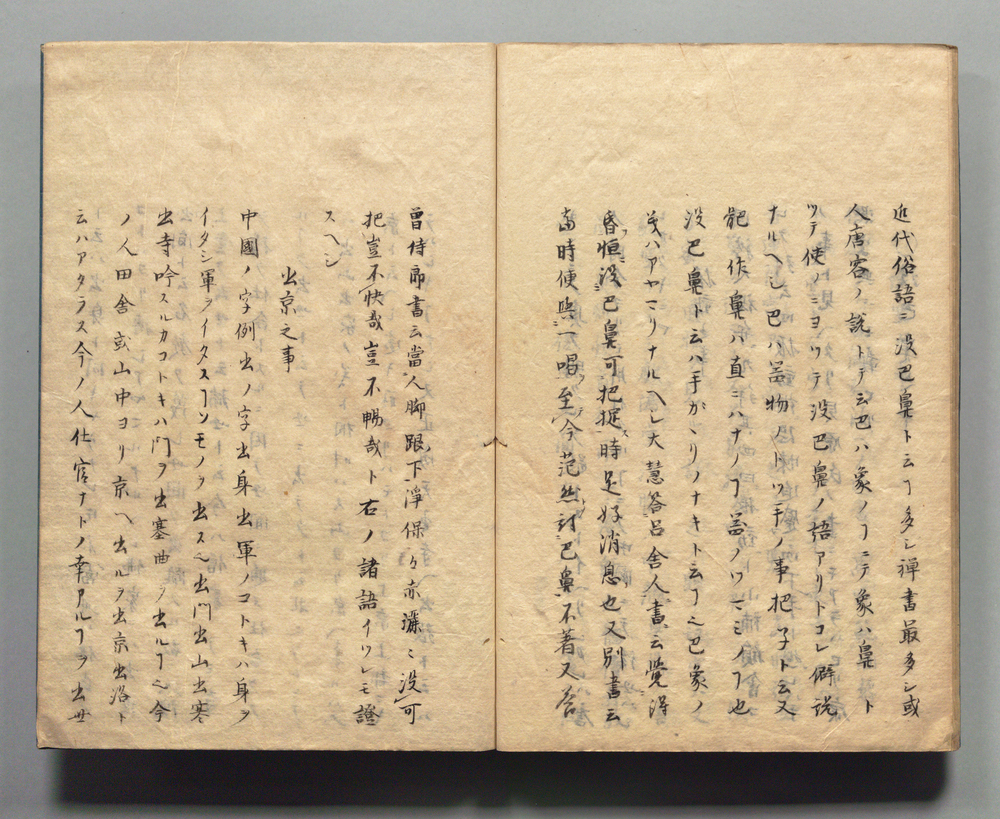 近代俗語ニ没巴鼻ト云ヿ多シ禅書最多シ或
人唐客ノ説トテ云巴ハ象ノヿニテ象ハ鼻ト
ツテ使ノミヨツテ没巴鼻ノ語アリトコレ僻説
ナルヘシ巴ハ器物ノトツ手ノ事把子ト云又
靶作鼻ハ直ニハナノヿ器ノツマミノヿ也
没巴鼻ト云ハ手がゝリノナキト云ヿ也巴象ノ
義ハアヤマリナルヘシ大慧答呂舎人書ニ云覺得
昏怛没巴鼻可把捉時是好消息也又別書云
當時便與一喝至今茫然討巴鼻不著又答
曽侍郎書云當人脚跟下淨倮々赤灑々没可
把豈不快哉豈不暢哉ト右ノ諸語イツレモ證
スヘシ
出京之事
中國ノ字例出ノ字出身出軍ノコトキハ身ヲ
イタシ軍ヲイタスヿソモノヲ出ス也出門出山出寒
出寺吟スルカコトキハ門ヲ出塞曲ヲ出ルヿ也今
ノ人田舎或山中ヨリ京ヘ出ルヲ出京出洛ト
云ハアタラス今ノ人仕官ナトノ幸アルヿヲ出世